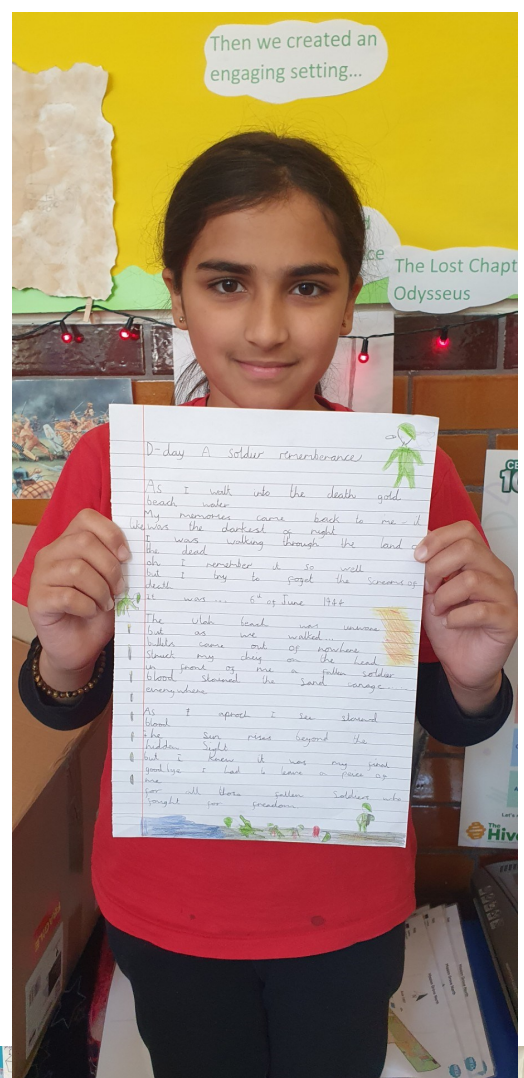 Then we created an
engaging setting...
ce
The Lost Chapt
Odysseus
D-day A soldier rememberance
As I walk into the death gold
beach water
My memories came back to me - it
like was the darkest of night
I was walking through the land of
the dead
oh I remember it so well
but I try to forgot the screams of
death
It was .... 6th of June 1944
The Utah beach was unaware
but as we walked...
bullets came out of nowhere
Struck my chey on the head
in front of me a fallen soldier
blood Stained the Sand carnage...
everywhere
As I aproch I see
blood
the sun rises beyond the
hidden Sight
but I knew it was my final
goodbye I had to leave a piece of
me
for all those fallen Soldiers who
fought for freedom
CE
10
Let's
The
Hive